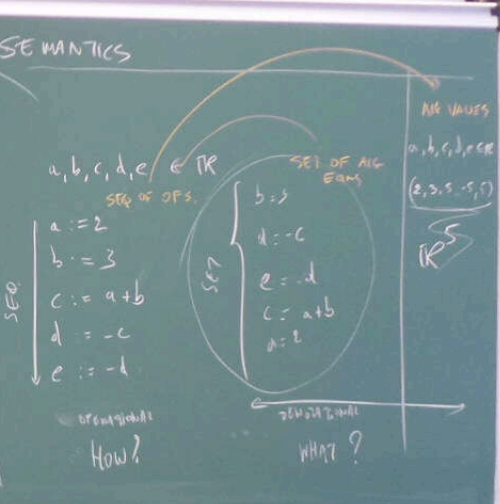 SEMANTICS
a, b, c, d, e ∈ ℝ
SEQ OF OPS.
SEQ.
a := 2
b := 3
c := a+b
d := -c
e := -d
OPERATIONAL
HOW?
SET OF ALG
EQNS
SET
b=3
d=-c
e=-d
c=a+b
a=2
DENOTATIONAL
WHAT?
ALG VALUES
a, b, c, d, e ∈ ℝ
(2, 3, 5, -5, 5)
ℝ⁵